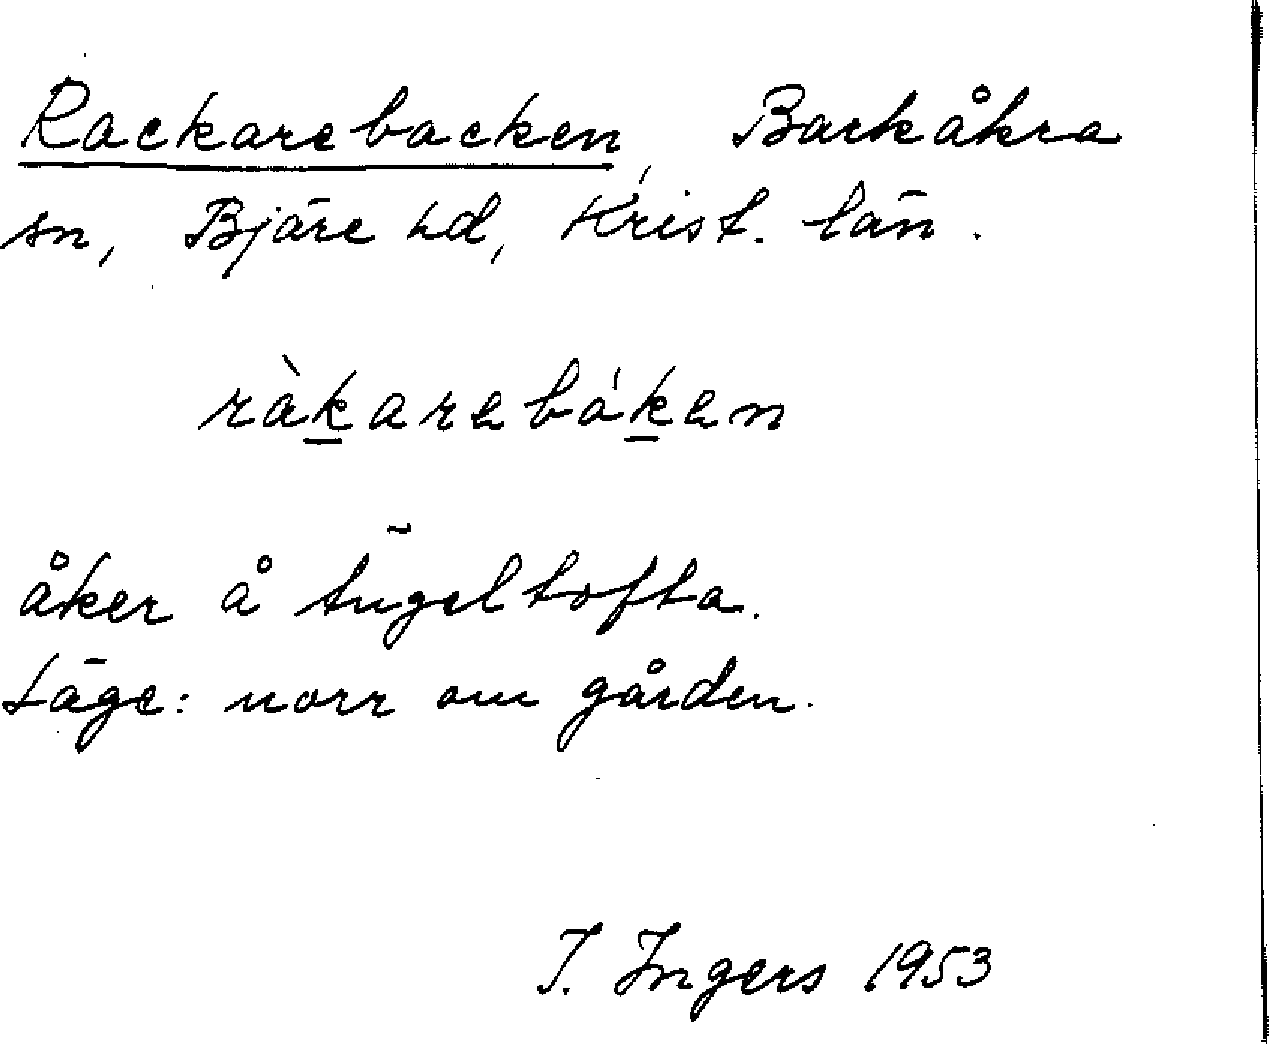 Rackarebacken, Barkåkra
sn, Bjäre hd, Krist. län.
ràkarebáken
åker å Ängeltofta.
Läge: norr om gården.
I. Ingers 1953